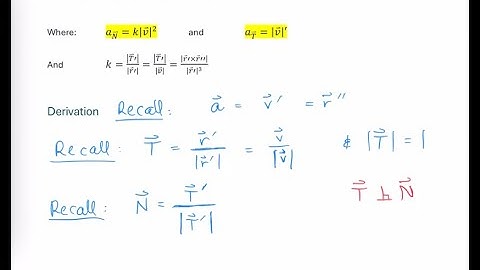 Where: a_N⃗ = k|v⃗|² and a_T⃗ = |v⃗|′
And k = |T⃗′|/|r⃗′| = |T⃗′|/|v⃗| = |r⃗′×r⃗′′|/|r⃗′|³
Derivation Recall: a⃗ = v⃗′ = r⃗″
Recall: T⃗ = r⃗′/|r⃗′| = v⃗/|v⃗| & |T⃗| = 1
Recall: N⃗ = T⃗′/|T⃗′| T⃗ ⊥ N⃗